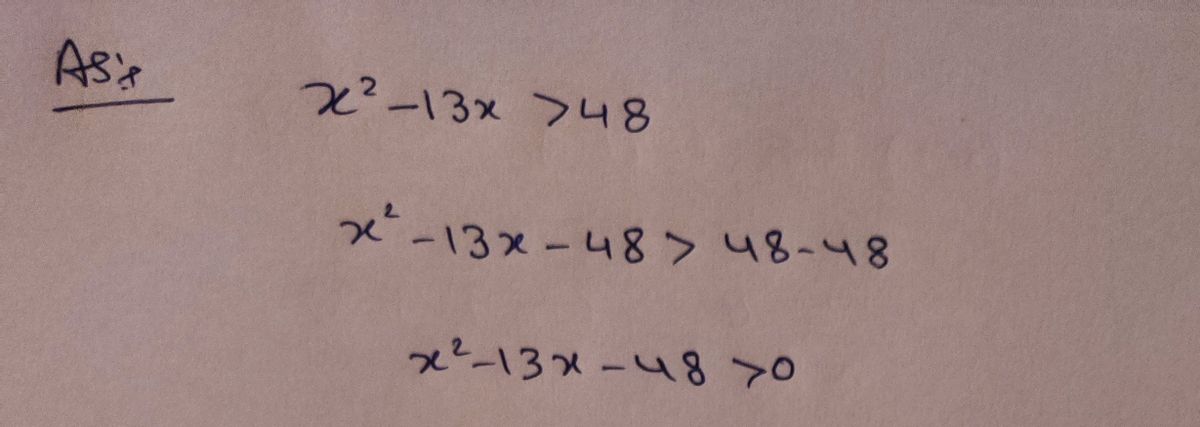 As:
x² - 13x > 48
x² - 13x - 48 > 48 - 48
x² - 13x - 48 > 0